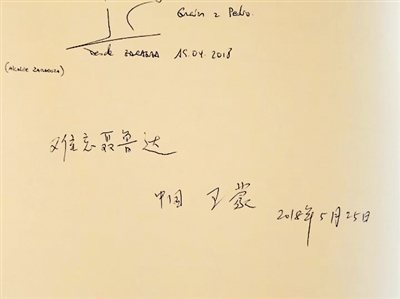 Desde ZARAGOZA 15.04.2018
(Alcalde ZARAGOZA)
难忘聂鲁达
中国 王蒙
2018年5月25日